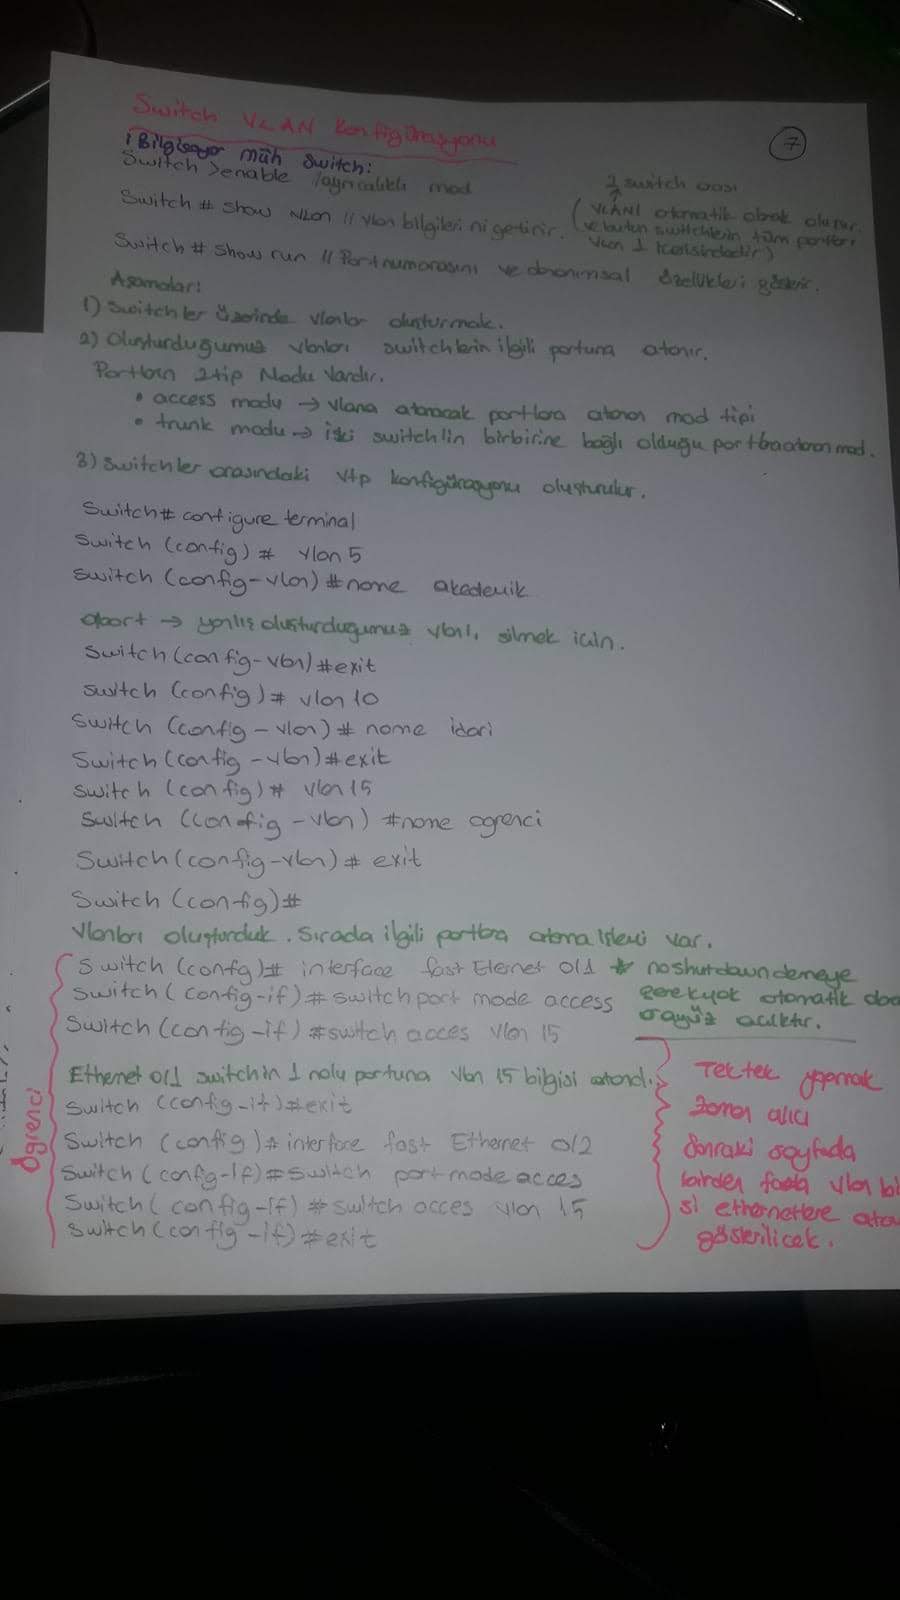 Switch VLAN Konfigürasyonu
7
! Bilgisayar müh switch:
Switch >enable /ayrıcalıklı mod
2 switch arası
Switch # show vlan // vlan bilgilerini getirir.
(VLAN1 otomatik olarak oluşur
ve bütün switchlerin tüm portları
Vlan 1 içerisindedir)
Switch # show run // Port numarasını ve donanımsal özellikleri gösterir.
Aşamalar:
1) Switchler üzerinde vlanlar oluşturmak.
2) Oluşturduğumuz vlanları switchlerin ilgili portuna atanır.
Portların 2 tip Modu Vardır.
• access modu → vlana atanacak portlara atanan mod tipi
• trunk modu → iki switchin birbirine bağlı olduğu portlara atanan mod.
3) Switchler arasındaki vtp konfigürasyonu oluşturulur.
Switch# configure terminal
Switch (config) # vlan 5
Switch (config-vlan) #name akademik
abort → yanlış oluşturduğumuz vlanı silmek için.
Switch (config-vlan) #exit
Switch (config) # vlan 10
Switch (config - vlan) # name idari
Switch (config -vlan) #exit
Switch (config) # vlan 15
Switch (config -vlan) #name ogrenci
Switch (config-vlan) # exit
Switch (config)#
Vlanları oluşturduk. Sırada ilgili portlara atama işlemi var.
Switch (config)# interface fast Eternet 0/1 * noshutdown demeye
Switch ( config-if) # switch port mode access gerek yok otomatik
Switch (config-if) #switch acces vlan 15
açıktır.
Öğrenci
Ethernet 0/1 switchin 1 nolu portuna vlan 15 bilgisi atandı.
Switch (config-if) #exit
Switch (config) # interface fast Ethernet 0/2
Switch (config-if) # switch port mode acces
Switch ( config-if) # switch acces vlan 15
Switch (config -if) #exit
Tek tek yapmak
zaman alıcı
Sonraki sayfada
birden fazla vlan
si ethernetlere
gösterilicek.